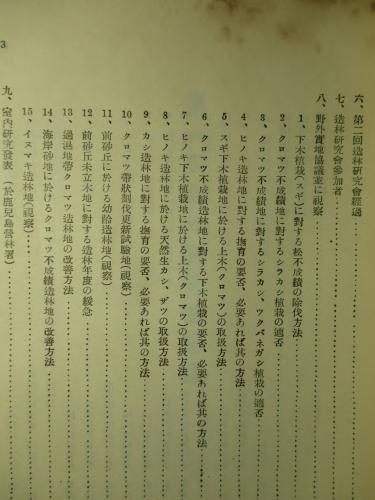 六、第二回造林硏究會經過
七、造林硏究會參加者
八、野外實地協議並に視察
1、下木植栽(スギ)に對する松不成績の除伐方法
2、クロマツ不成績地に對するシラカシ植栽の適否
3、クロマツ不成績地に對するシラカシ、ツクバネガシ植栽の適否
4、ヒノキ造林地に對する撫育の要否、必要あれば其の方法
5、スギ下木植栽地に於ける上木(クロマツ)の取扱方法
6、クロマツ不成績造林地に對する下木植栽の要否、必要あれば其の方法
7、ヒノキ下木植栽地に於ける上木(クロマツ)の取扱方法
8、ヒノキ造林地に於ける天然生カシ、ザツの取扱方法
9、カシ造林地に對する撫育の要否、必要あれば其の方法
10、クロマツ帶狀劃伐更新試驗地(視察)
11、前砂丘に於ける幼齡造林地(視察)
12、前砂丘未立木地に對する造林年度の緩急
13、過濕地帶クロマツ造林地の改善方法
14、海岸砂地に於けるクロマツ不成績造林地の改善方法
15、イヌマキ造林地(視察)
九、室內硏究發表(於鹿兒島營林署)
3